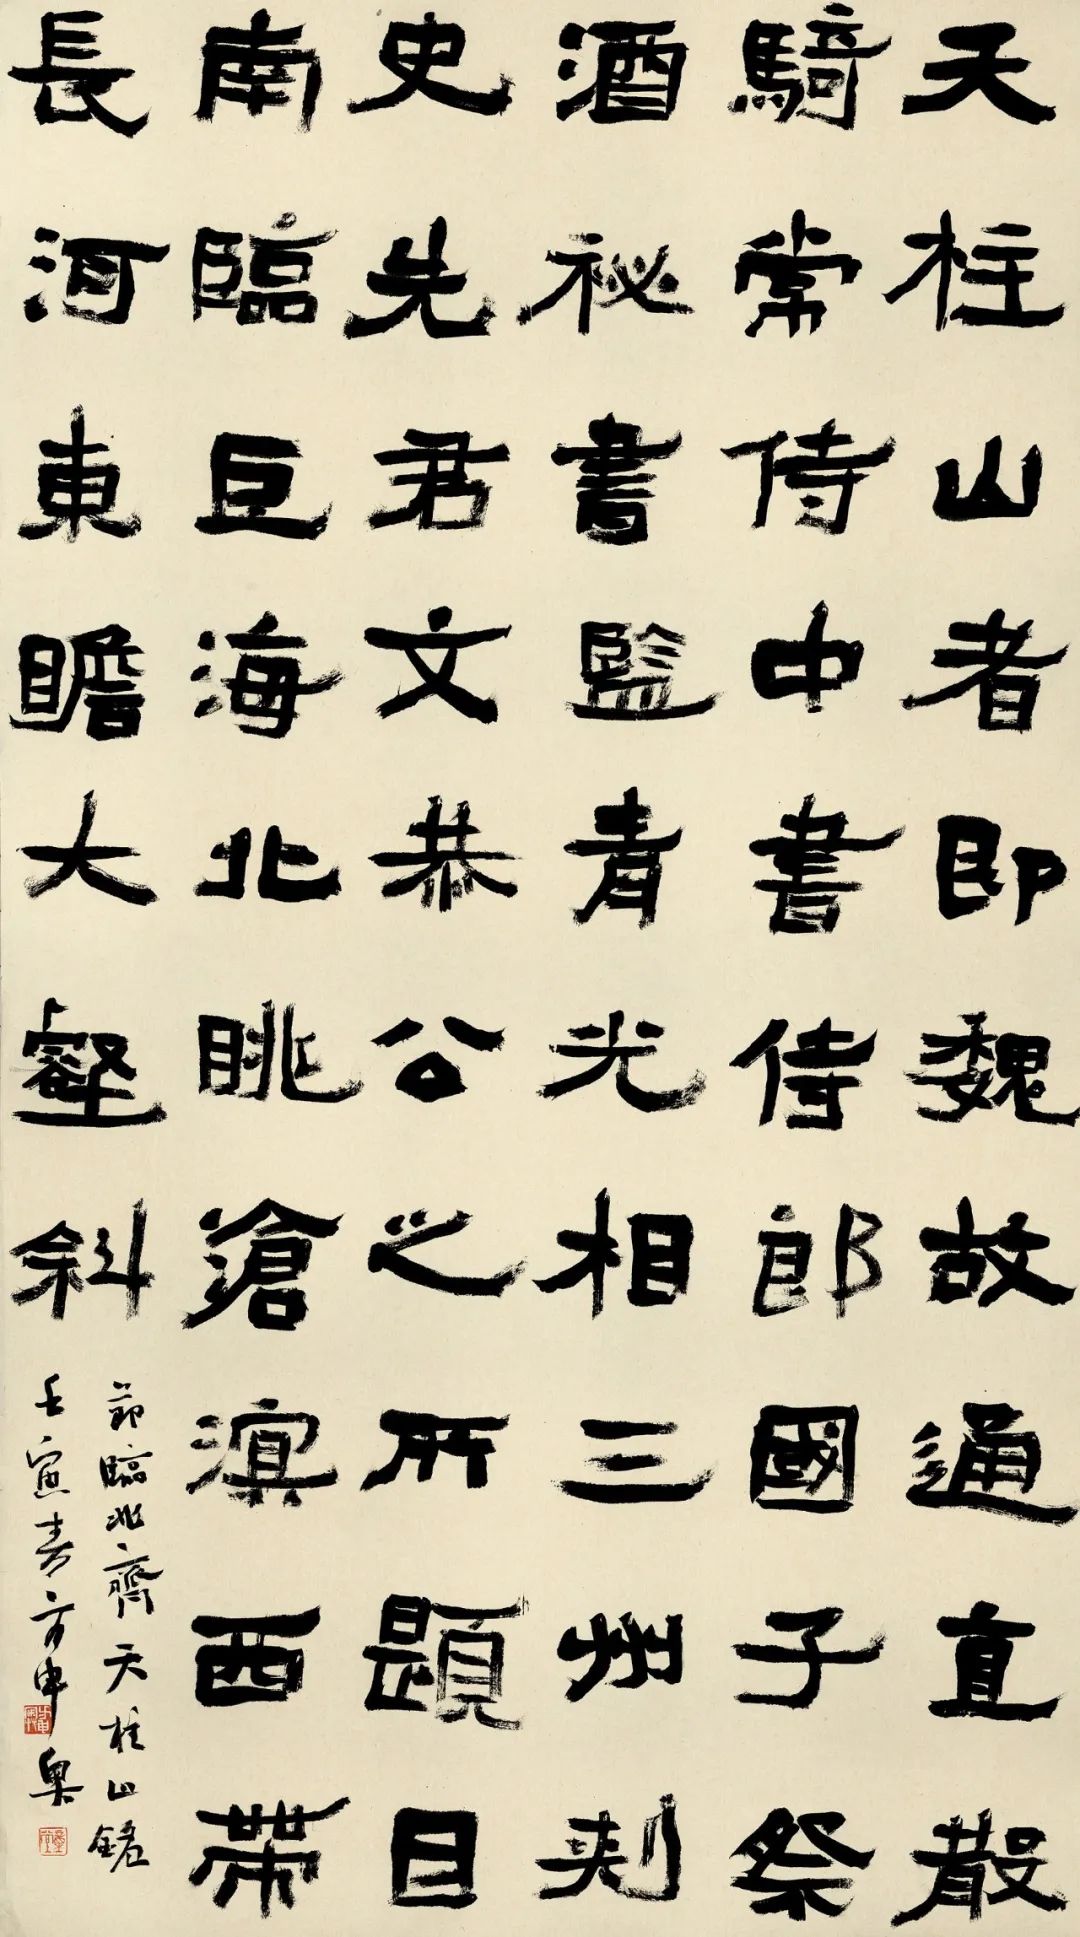 天柱山者即魏故通直散
騎常侍中書侍郎國子祭
酒祕書監青光相三州刾
史先君文恭公之所題目
南臨巨海北眺滄溟西帶
長河東瞻大壑斜
節臨北齊天柱山銘
壬寅春方申